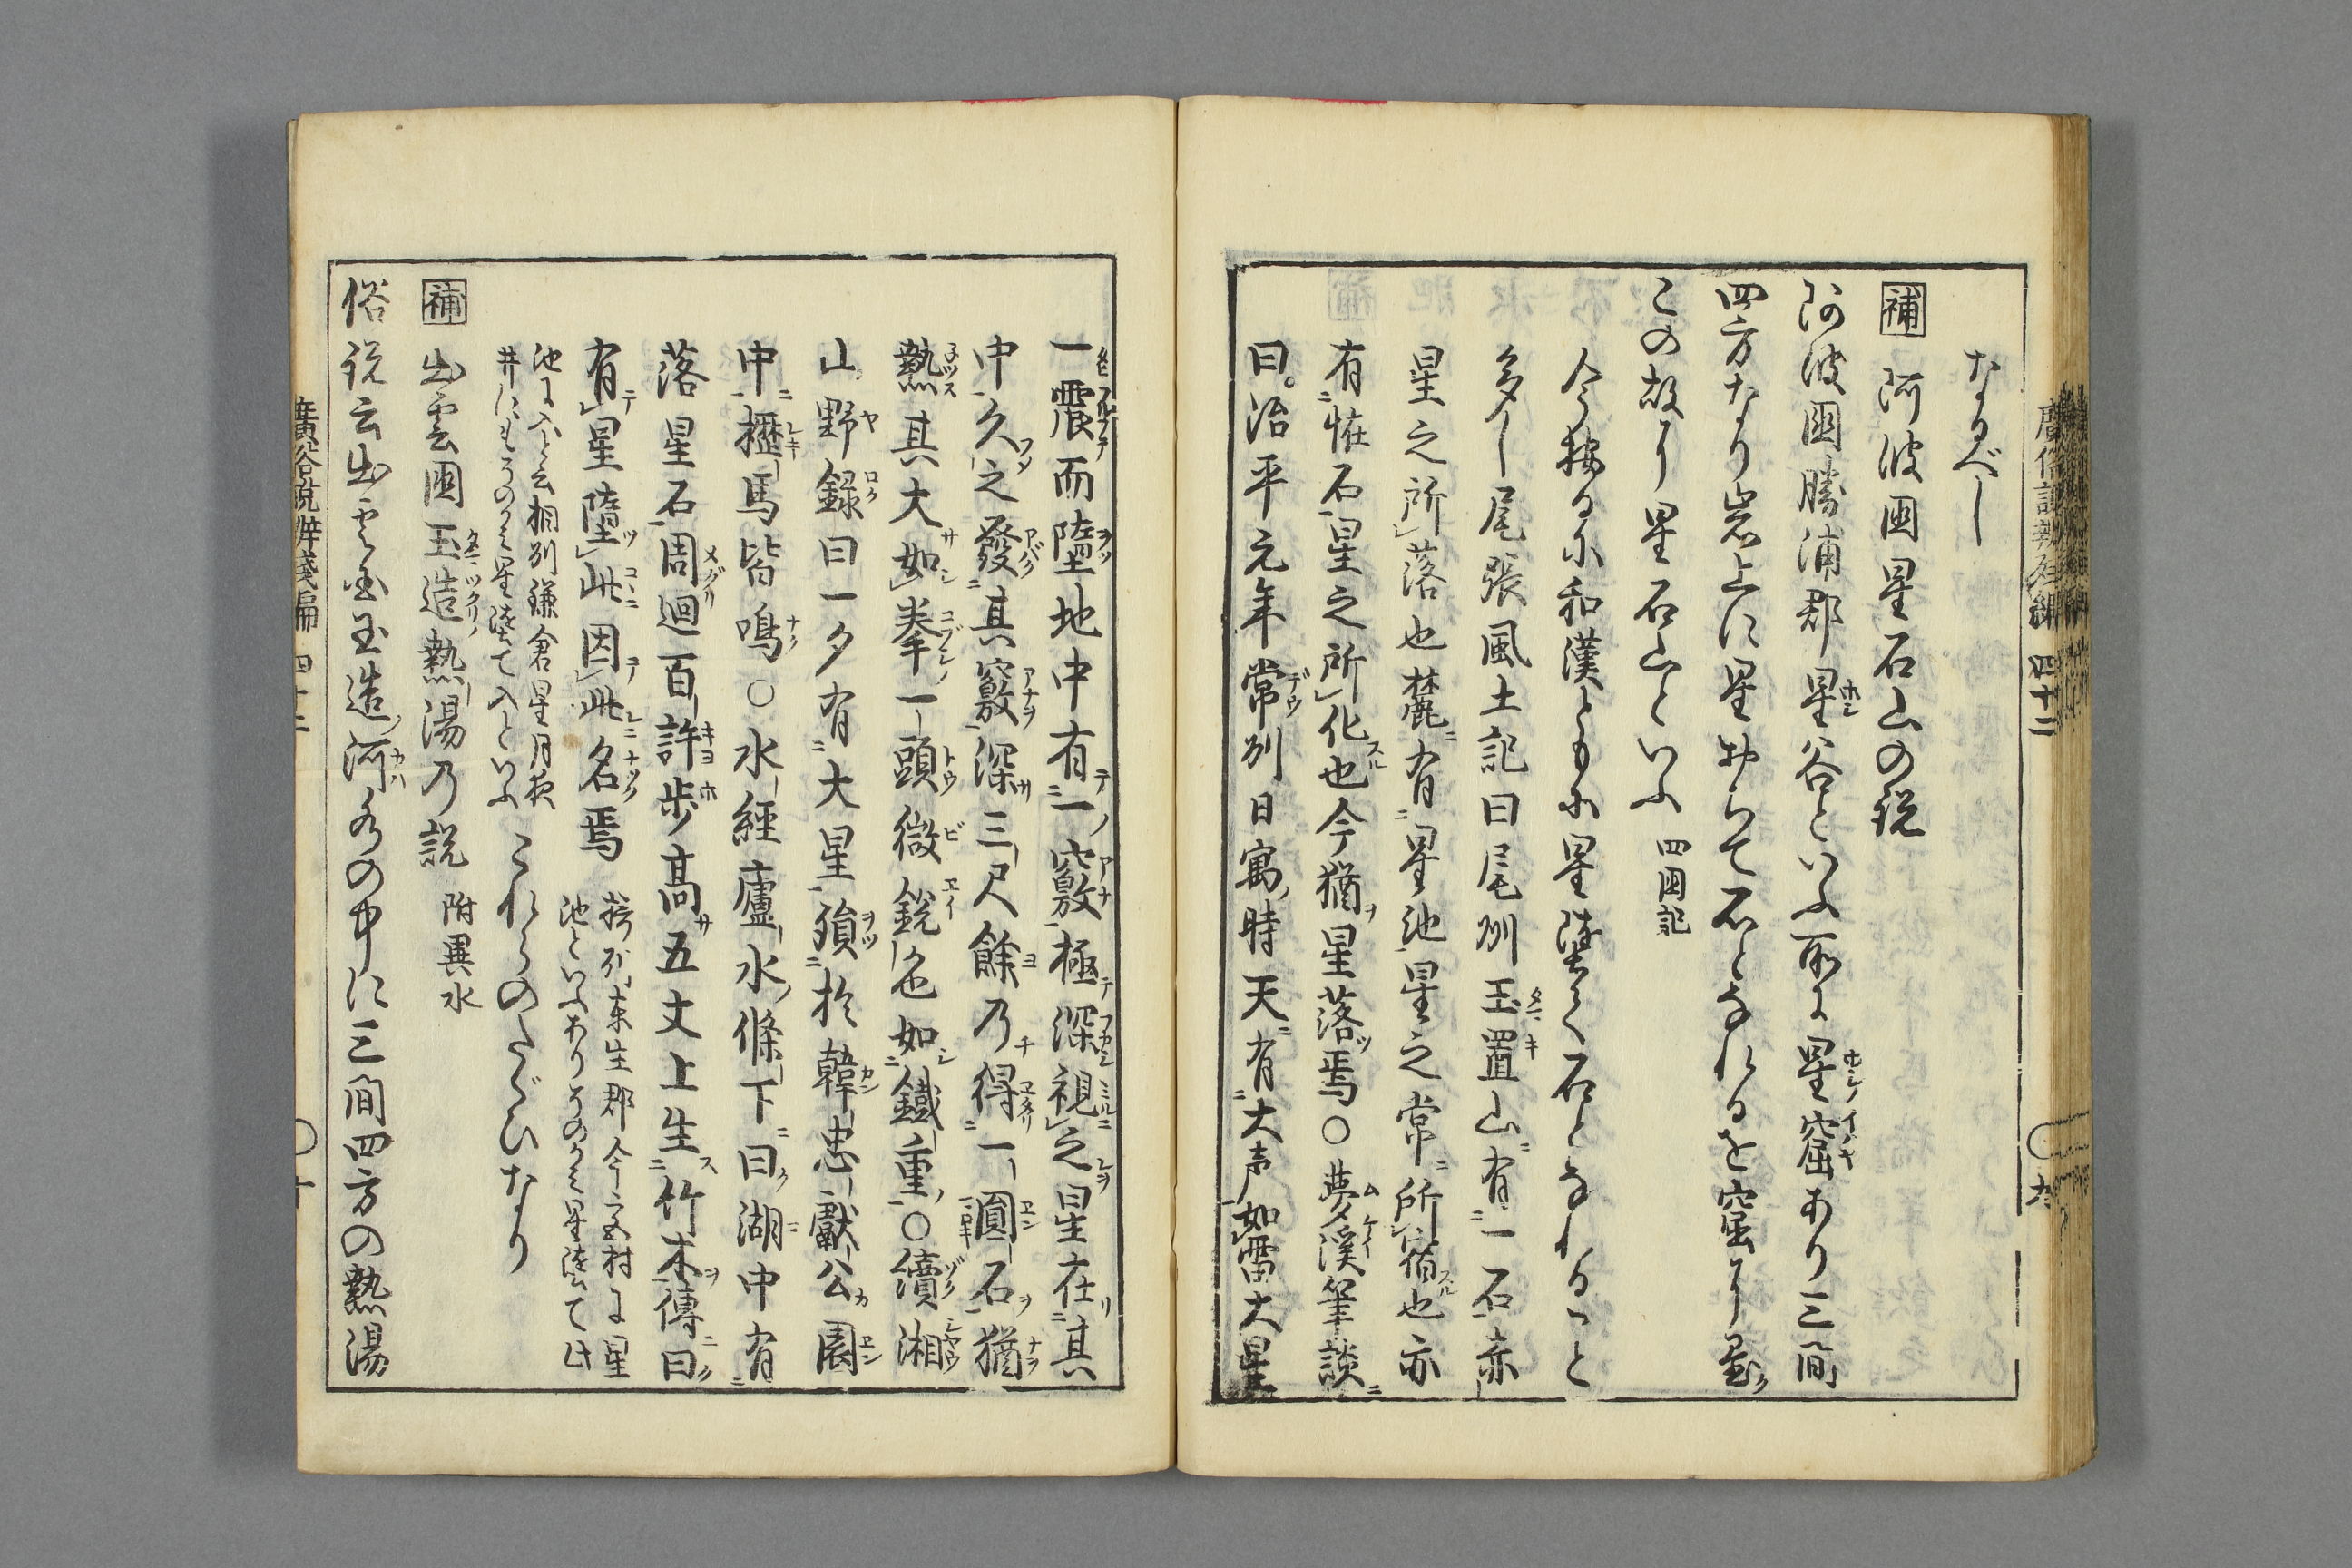 なるべし
補 阿波国星石山の説
阿波国勝浦郡星谷といふ所に星窟あり三間
四方なり岩上に星おちて石となれるを窟に置
この故に星石山といふ 四国記
今按るに和漢ともに星墜て石となれること
多し尾張風土記曰尾州玉置山有一石赤
星之所落也麓有星池星之常所宿也亦
有恠石星之所化也今猶星落焉〇夢渓筆談
曰治平元年常州日寓時天有大声如雷大星
一震而墮地中有一竅極深視之星在其
中久之發其竅深三尺餘乃得一圓石猶
熱其大如拳一頭微鋭色如鐵重〇續湘
山野録曰一夕有大星殞於韓忠獻公園
中櫪馬皆鳴〇水經廬水條下曰湖中有
落星石周迴百許歩高五丈上生竹木傳曰
有星墮此因此名焉 摂州東生郡今宮村に星
池といふありそのかミ星墜て此
池に入と云相州鎌倉星月夜
井にもそのかミ星墜て入といふ これらのたぐひなり
補 出雲国玉造熱湯乃説 附異水
俗説云出雲国玉造河水の中に三間四方の熱湯
廣俗説辨殘編 四十二 九
廣俗説辨殘編 四十二 十